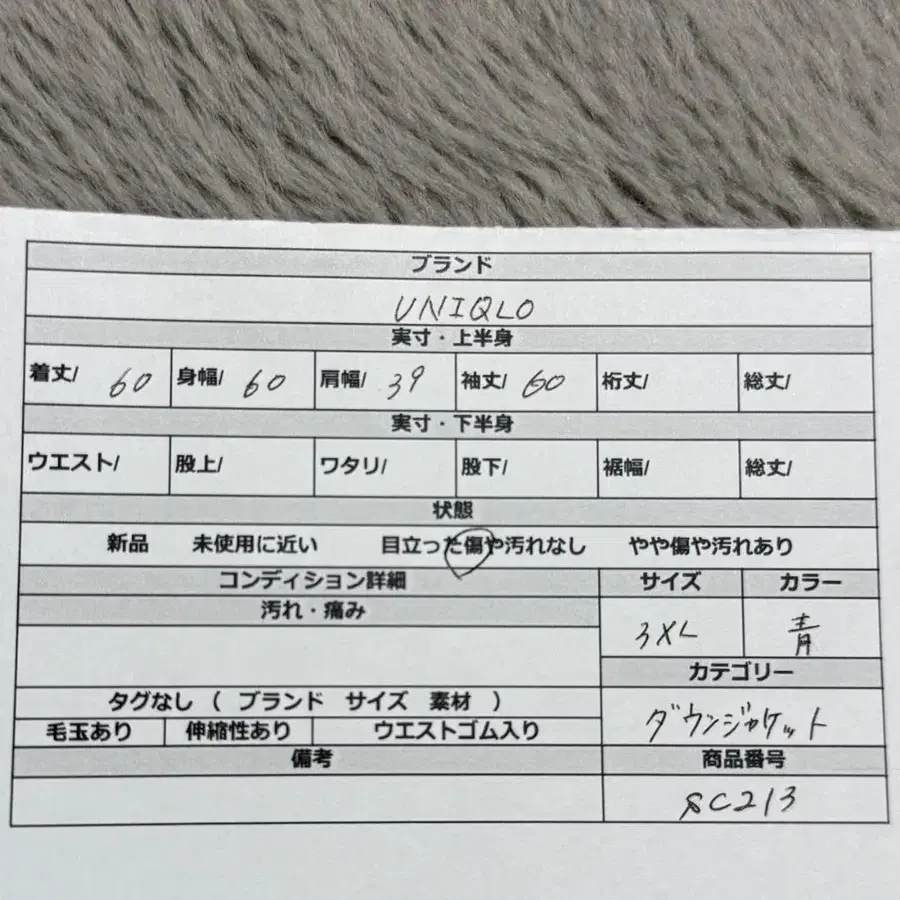 ブランド
UNIQLO
実寸・上半身
着丈/ 60 身幅/ 60 肩幅/ 39 袖丈/ 60 裄丈/ 総丈/
実寸・下半身
ウエスト/ 股上/ ワタリ/ 股下/ 裾幅/ 総丈/
状態
新品 未使用に近い 目立った傷や汚れなし やや傷や汚れあり
コンディション詳細 サイズ カラー
汚れ・痛み
3XL 青
カテゴリー
タグなし ( ブランド サイズ 素材 )
ダウンジャケット
毛玉あり 伸縮性あり ウエストゴム入り
備考 商品番号
SC213